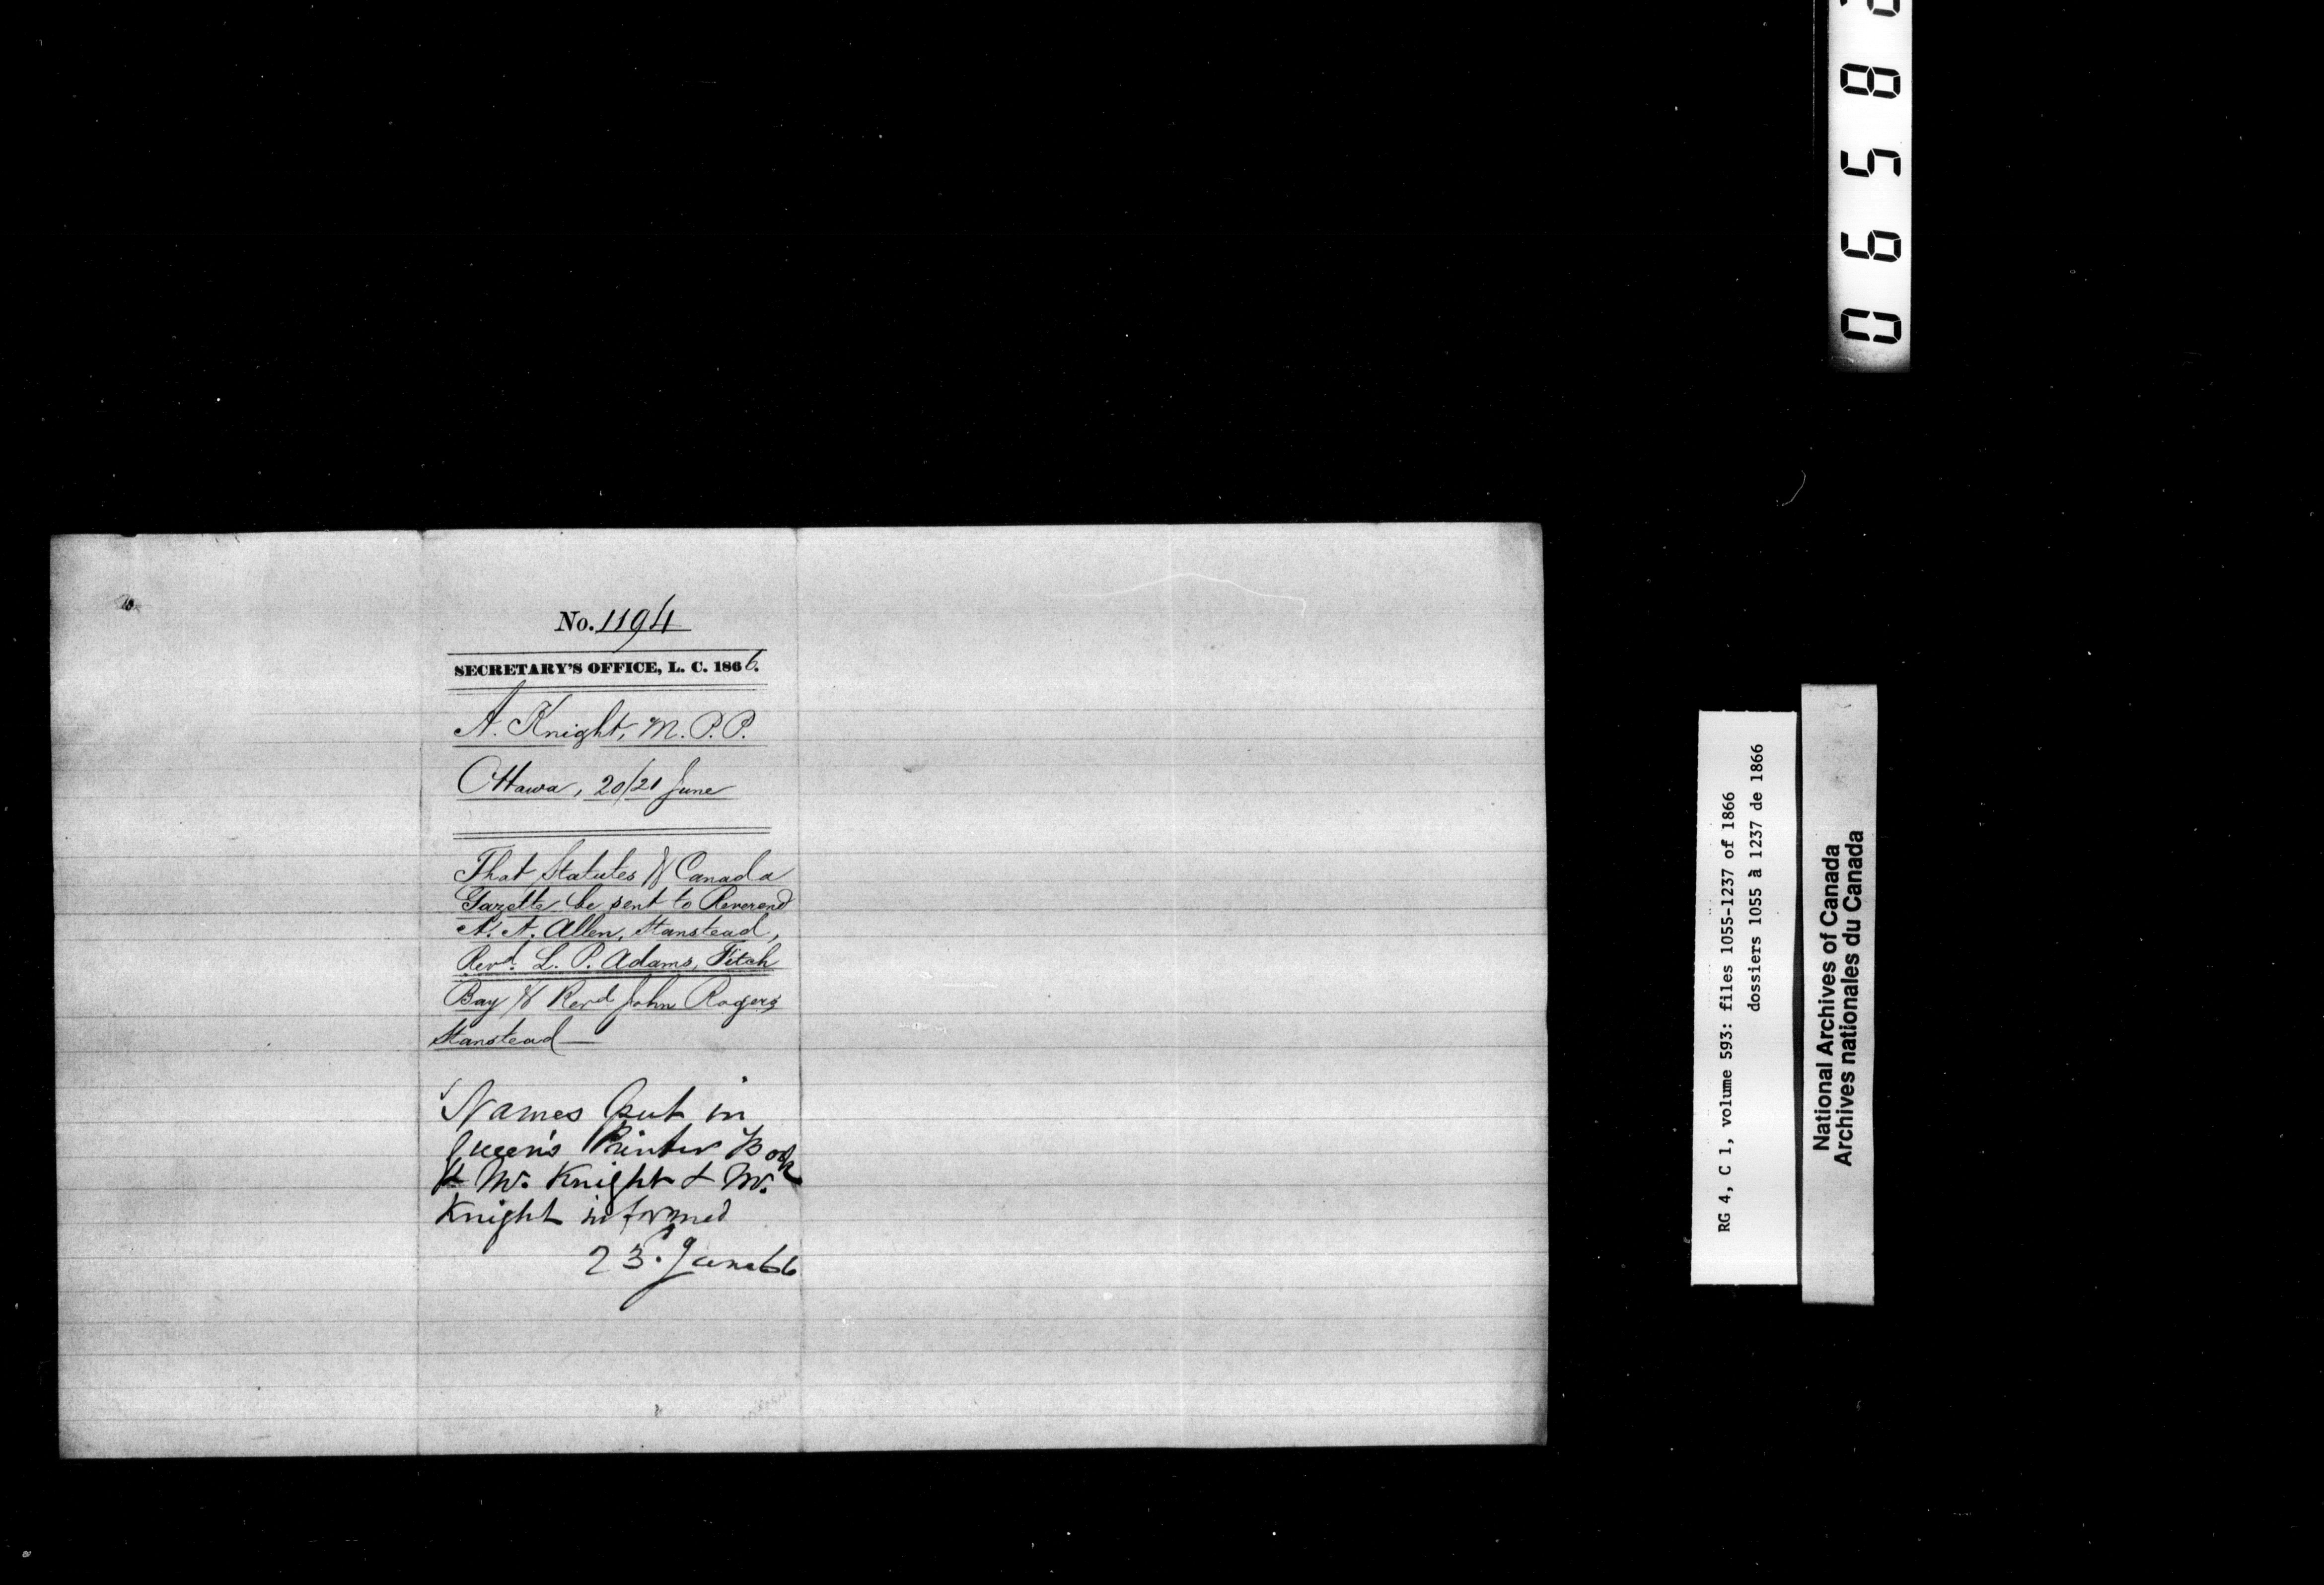 No. 1194
SECRETARY'S OFFICE, L. C. 1866.
A. Knight, M.P.P.
Ottawa, 20/21 June
That Statutes & Canada
Gazette be sent to Reverend
A. A. Allen, Stanstead,
Revd. L. P. Adams, Fitch
Bay & Revd John Rogers
Stanstead —
Names put in
Queen's Printer Book
Mr. Knight & Mr.
Knight informed
23. June 66
0658
RG 4, C 1, volume 593: files 1055-1237 of 1866
dossiers 1055 à 1237 de 1866
National Archives of Canada
Archives nationales du Canada